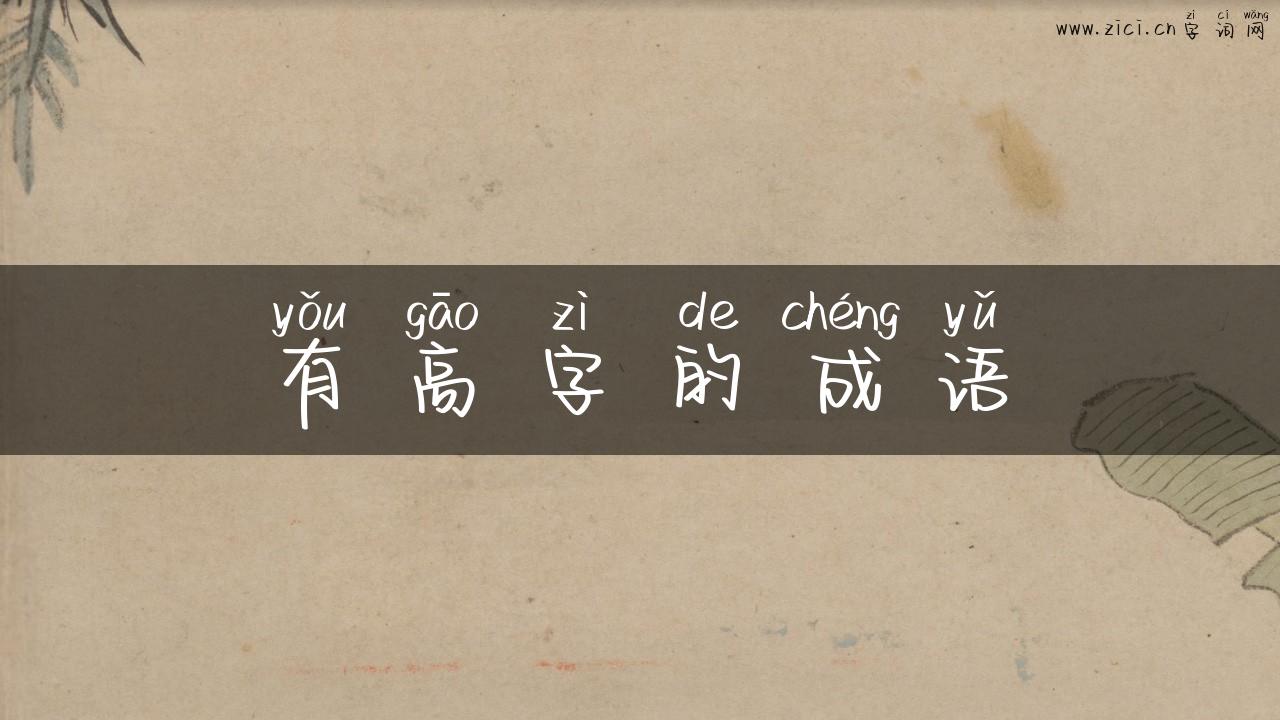 zì cí wǎng
www.zici.cn 字词网
yǒu gāo zì de chéng yǔ
有高字的成语